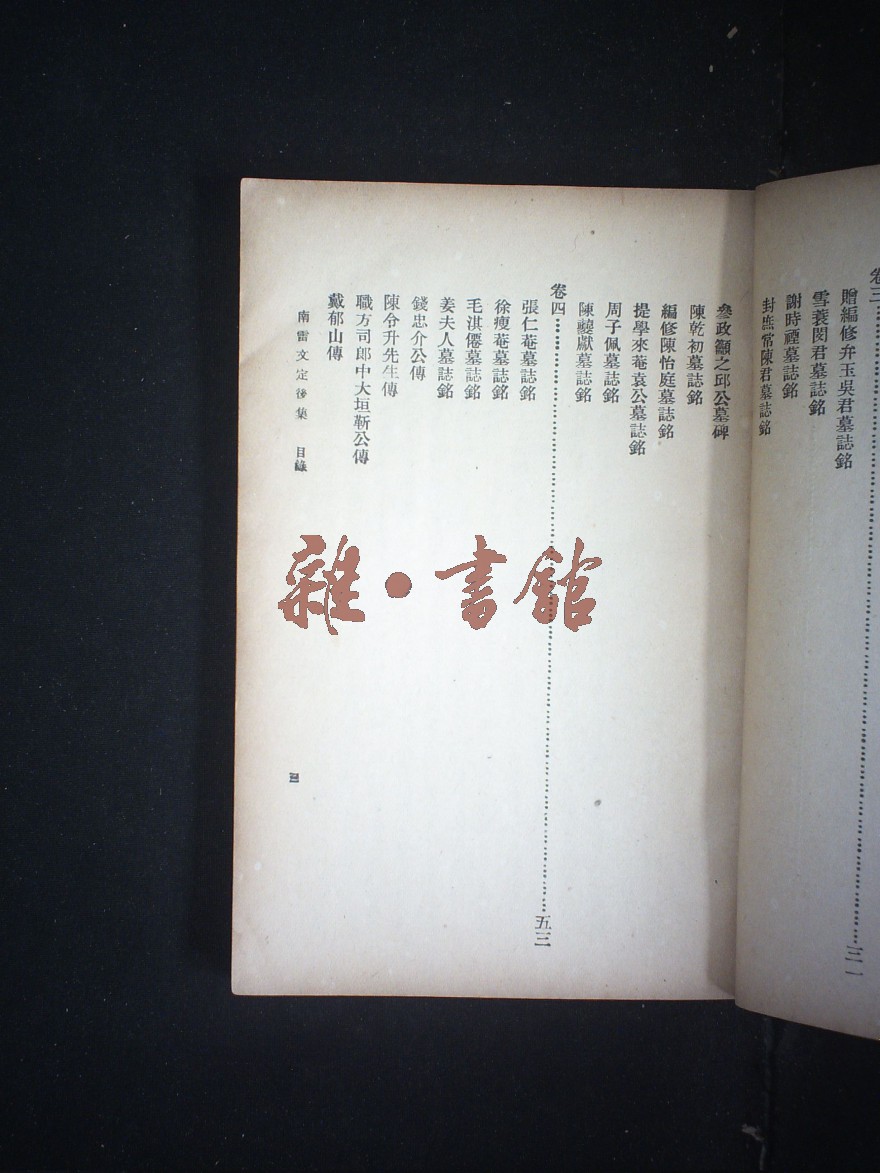 卷三……三一
贈編修弁玉吳君墓誌銘
雪蓑閔君墓誌銘
謝時禋墓誌銘
封庶常陳君墓誌銘
參政籲之邱公墓碑
陳乾初墓誌銘
編修陳怡庭墓誌銘
提學來菴袁公墓誌銘
周子佩墓誌銘
陳夔獻墓誌銘
卷四……五三
張仁菴墓誌銘
徐瘦菴墓誌銘
毛淇僊墓誌銘
姜夫人墓誌銘
錢忠介公傳
陳令升先生傳
職方司郎中大垣靳公傳
戴郁山傳
南雷文定後集 目錄
四
雜·書館